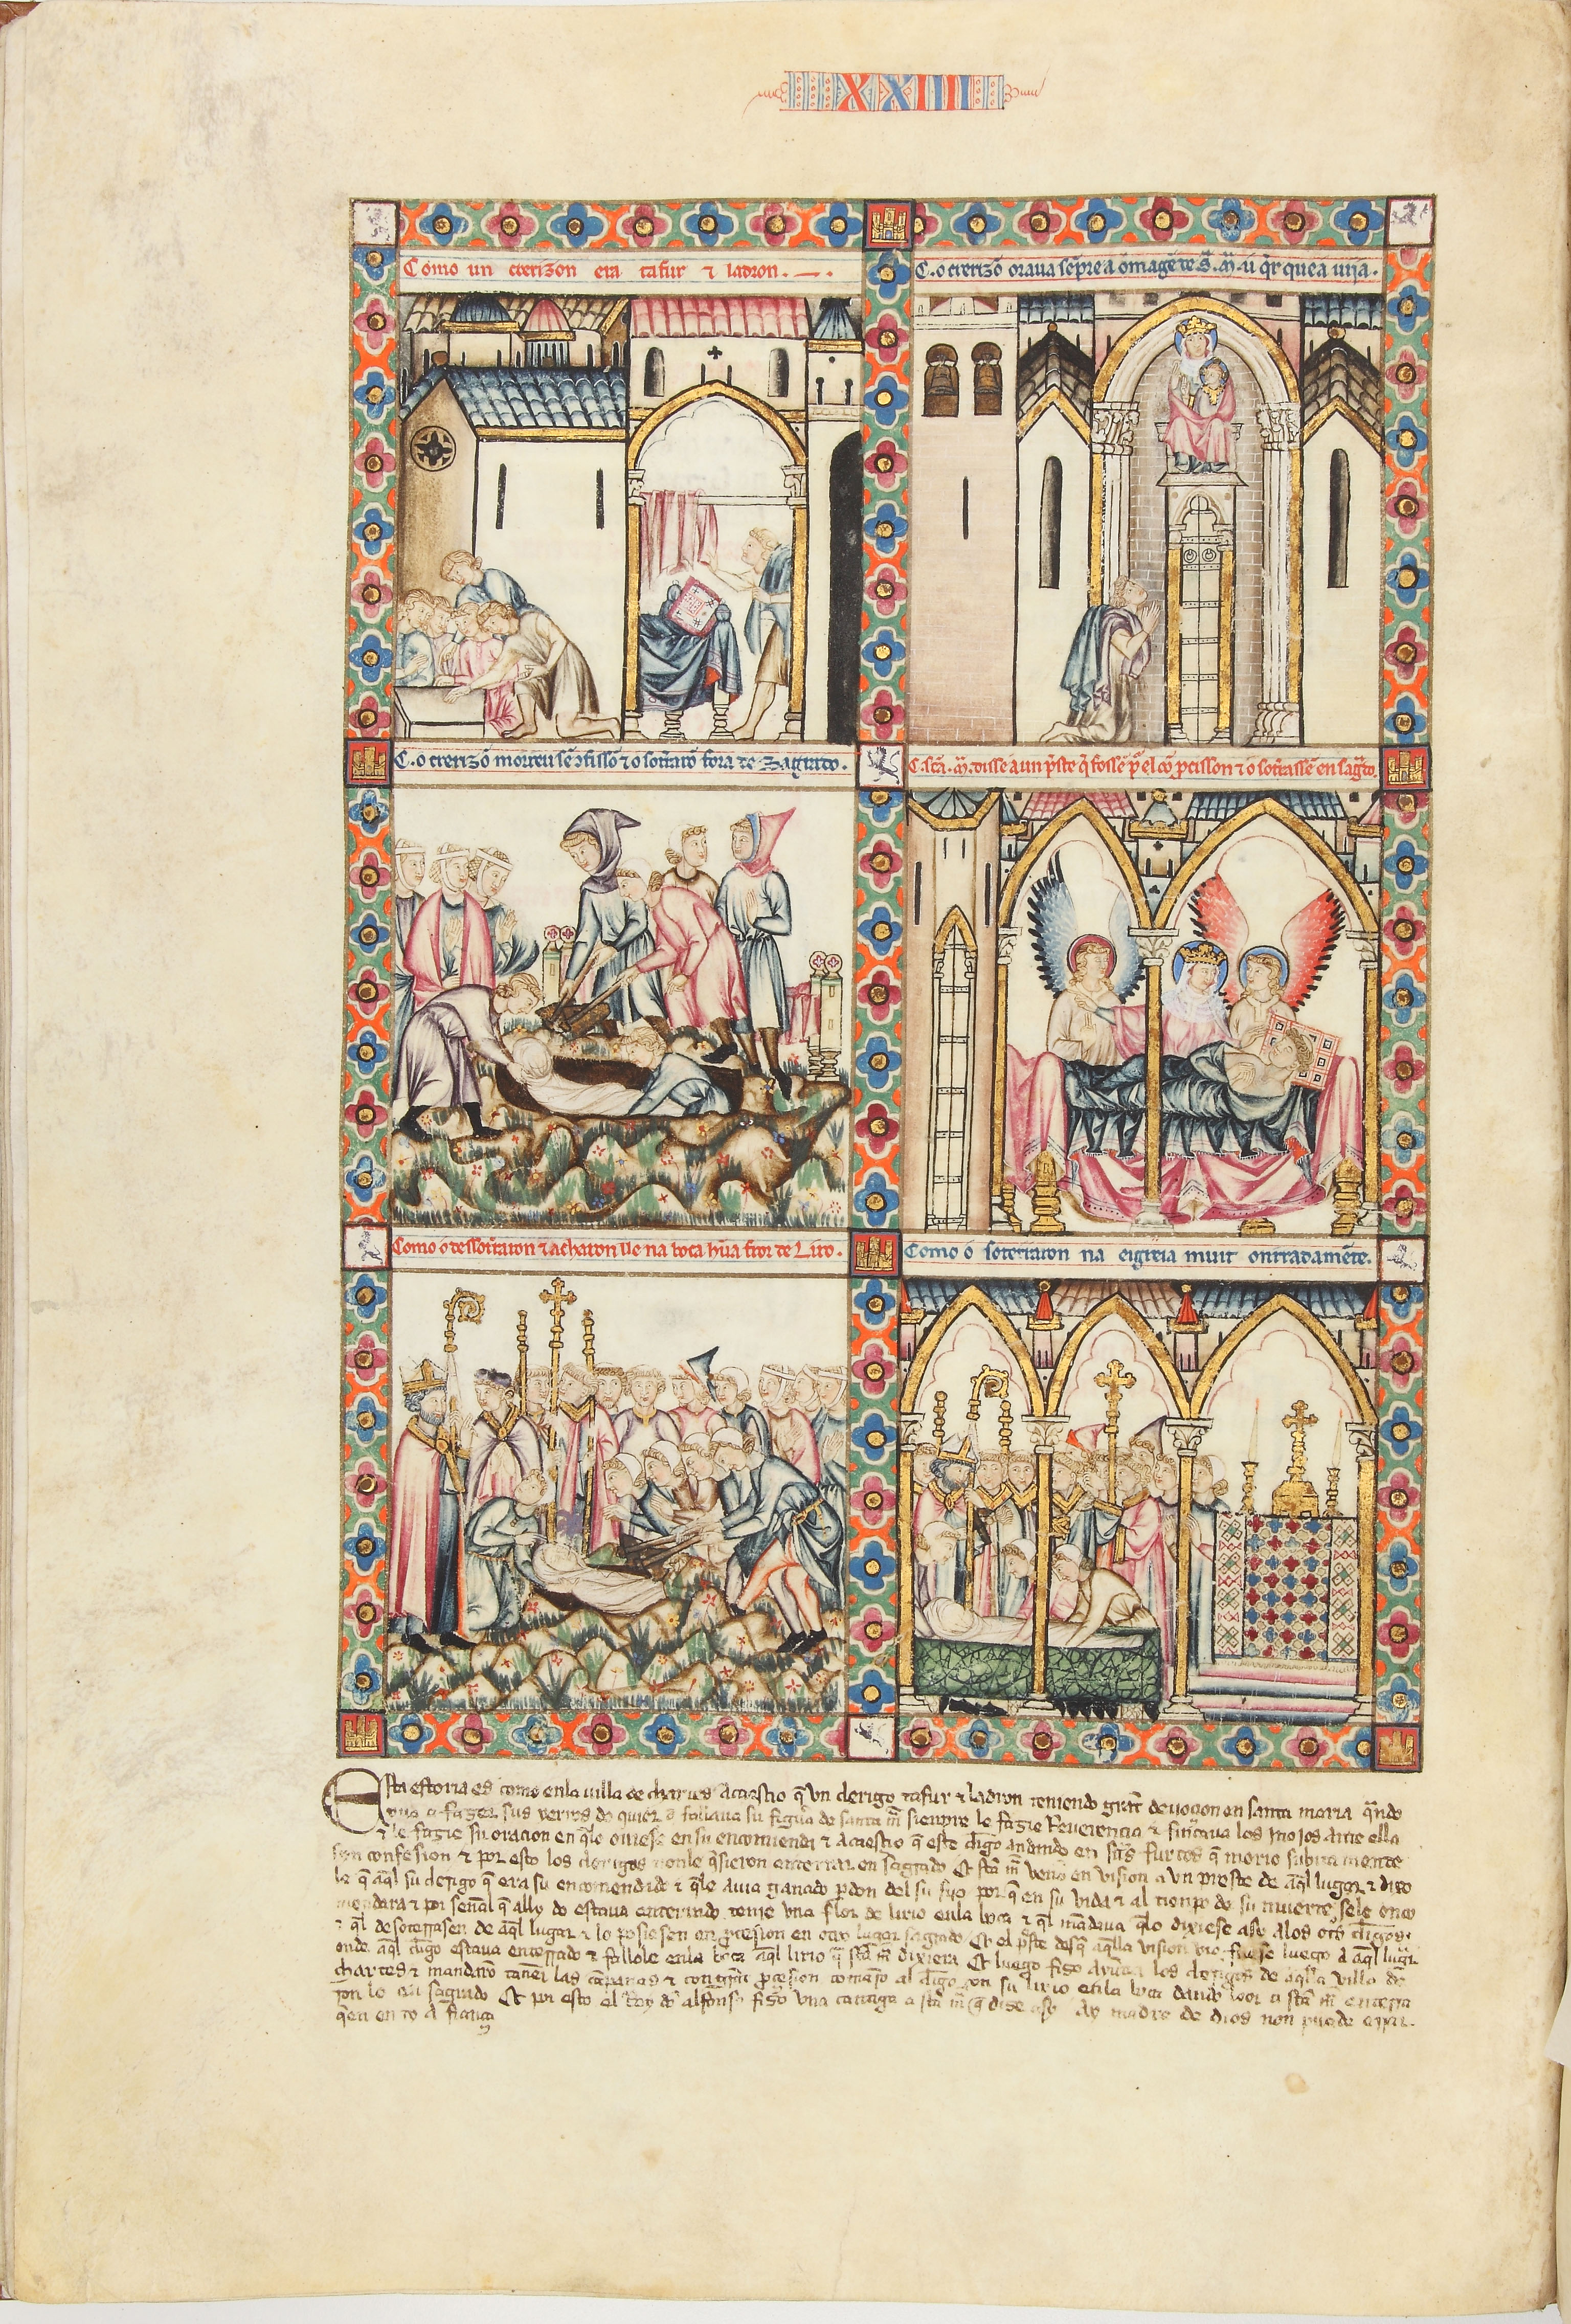 XXIIII
Como un crerizon era tafur ⁊ ladron.
C. o crerizō orava sēpre a omage de S. M. u q̄r que a viia.
C. o crerizō morreu sē ɔfissō ⁊ o soterrarō fora de sagrado.
C. sc̄a. M. disse a un p̄ste q̄ fossē p̄ el cō p̄cisson ⁊ o soterrassē en sag̃do.
Como o dessoterraron ⁊ acharon lle na boca hūa fror de Lirio.
Como o soterraron na eigreia muit onrradamēte.
Esta estoria es como en la villa de chartes Acaesçio q̄ un clerigo tafur ⁊ ladron teniendo grāt devoçion en santa maria q̄ndo
yva a fazer sus yerros do quier q̄ fallava su figura de santa m̄ sienpre le fazie Reverencia ⁊ fincava los inojos ante ella
⁊ le fazie su oracion en q̄ lo oviese en su encomienda ⁊ Acaesçio q̄ este cl̄igo andando en sus furtos q̄ morio subitamente
sin confesion ⁊ por esto los clerigos non le q̄sieron enterrar en sagrado Et sta m̄ veno en vision a un preste de aq̄l lugar ⁊ dixo
le q̄ aq̄l su clerigo q̄ era su encomendado ⁊ q̄ le avia ganado p̄don del su fijo por q̄ en su vida ⁊ al tienpo de su muerte se le enco
mendara ⁊ por señal q̄ ally do estava enterrado tenie una flor de lirio en la boca ⁊ q̄l mandava q̄ lo dixiese asy a los otros cl̄igos
⁊ q̄l desoterrasen de aq̄l lugar ⁊ lo posiesen en p̄cesion en otro lugar sagrado Et el p̄ste desq̄ aq̄lla vision vio fuese luego a aq̄l lugar
onde aq̄l cl̄igo estava enterrado ⁊ fallole en la boca aq̄l lirio q̄ sta m̄ dixiera Et luego fizo ayuntar los clerigos de aq̄lla villa de
chartes ⁊ mandarō tañer las canpanas ⁊ con grāt p̄cesion tomarō al cl̄igo con su lirio en la boca dando loor a sta m̄ enterra
ron lo en sagrado Et por esto el Rey dō alfonso fizo una cantiga a sta m̄ q̄ dize asy Ay madre de dios non puede errar
q̄en en to a fiança